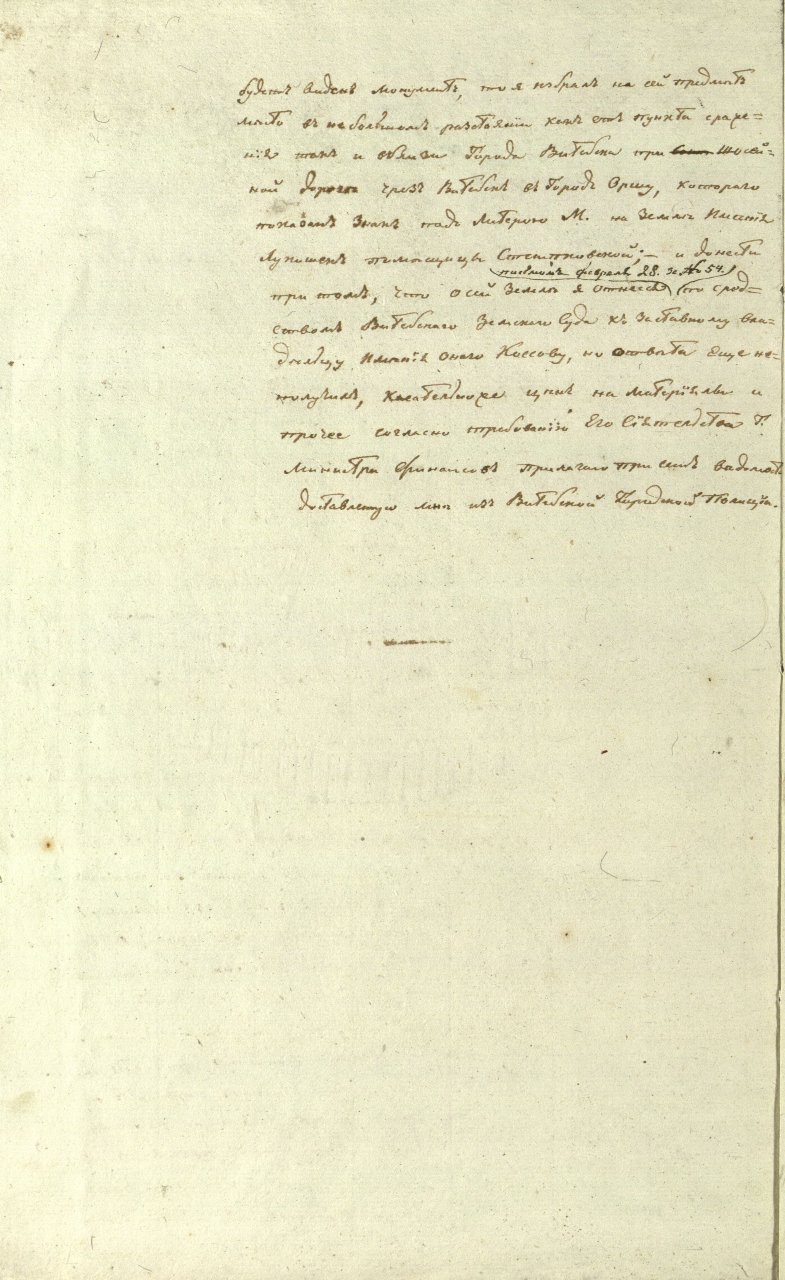 будетъ виденъ монументъ, то я избралъ на сей предметъ
мѣсто въ небольшомъ разстояніи какъ отъ пункта сраже=
нія такъ и вблизи Города Витебска при шосей=
ной дороге чрезъ Витебскъ въ Городъ Оршу, котораго
показанъ знакъ подъ Литерою М. на землѣ Имѣнія
Лукишекъ помѣщицы; — и донести
писмомъ февраля 28. за № 54.
при томъ, что о сей землѣ я отнесся по сред=
ствомъ Витебскаго Земскаго Суда къ заставному вла=
дѣльцу Имѣнія онаго Коссову, но отвѣта еще не=
получилъ, касательноже ценъ на матеріалы и
прочее согласно требованію Его Сіятельства Г.
Министра Финансовъ прилагаю при семъ ведомость
доставленную мнѣ изъ Витебской Градской Полиціи.